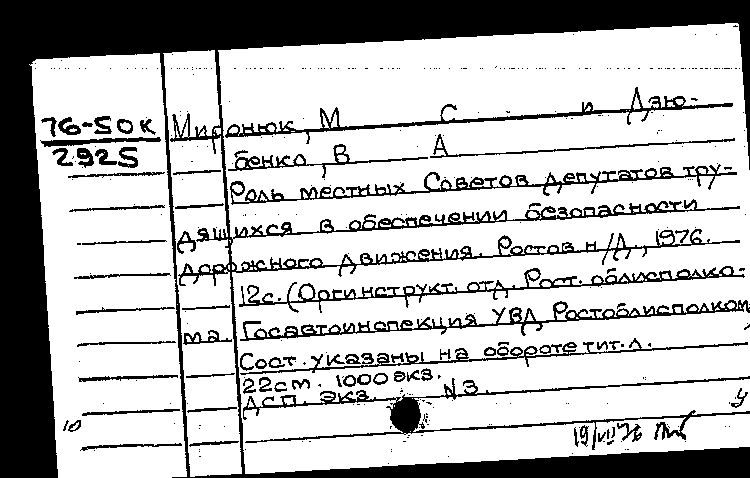 76-50к Миронюк, М С и Дзю-
2925 бенко, В А
Роль местных Советов депутатов тру-
дящихся в обеспечении безопасности
дорожного движения. Ростов н/Д., 1976.
12с. (Оргинструкт. отд. Рост. облисполко-
ма. Госавтоинспекция УВД Ростоблисполкома
Сост. указаны на обороте тит. л.
22см. 1000 экз.
ДСП. экз. N3.
10 у
19/VII 76